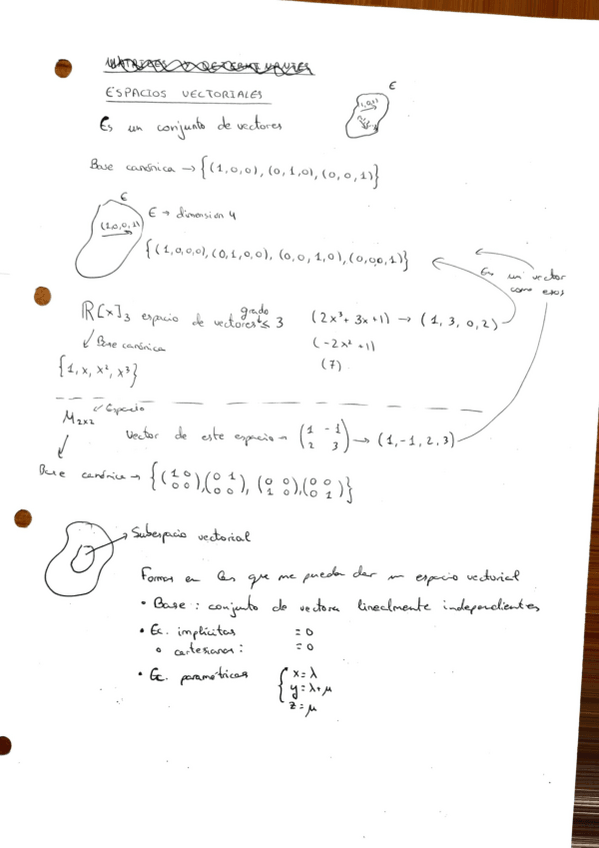 MATRICES Y DETERMINANTES
ESPACIOS VECTORIALES
E
Es un conjunto de vectores
Base canónica → {(1,0,0), (0,1,0), (0,0,1)}
E
(1,0,0,1)
E → dimension 4
{(1,0,0,0), (0,1,0,0), (0,0,1,0), (0,0,0,1)}
Es un vector
como esos
R[x]₃ espacio de vectores grado ≤ 3 (2x³+3x+1) → (1,3,0,2)
Base canónica (-2x²+1)
{1, x, x², x³} (7)
M₂ₓ₂ Espacio
Vector de este espacio → (1 -1 / 2 3) → (1,-1,2,3)
Base canónica → {(1 0 / 0 0), (0 1 / 0 0), (0 0 / 1 0), (0 0 / 0 1)}
Subespacio vectorial
Formas en las que me pueden dar un espacio vectorial
• Base: conjunto de vectores linealmente independientes
• Ec. implícitas = 0
o cartesianas: = 0
• Ec. paramétricas { x=λ
y=λ+μ
z=μ